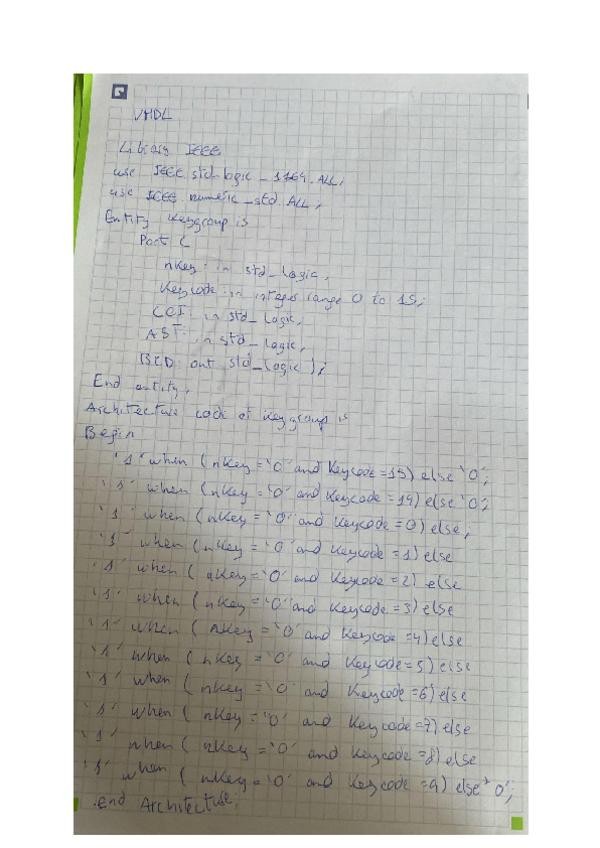 VHDL
Library IEEE
use IEEE.std_logic_1164.ALL;
use IEEE.numeric_std.ALL;
Entity Keygroup is
Port (
nKey: in std_logic;
Keycode: in integer range 0 to 15;
in std_logic;
AST: in std_logic;
BCD: out std_logic);
End entity;
Architecture code of Keygroup is
Begin
'1' when (nKey='0' and Keycode=15) else '0';
'1' when (nKey='0' and Keycode=14) else '0';
'1' when (nKey='0' and Keycode=0) else;
'1' when (nKey='0' and Keycode=1) else
'1' when (nKey='0' and Keycode=2) else
'1' when (nKey='0' and Keycode=3) else
'1' when (nKey='0' and Keycode=4) else
'1' when (nKey='0' and Keycode=5) else
'1' when (nKey='0' and Keycode=6) else
'1' when (nKey='0' and Keycode=7) else
'1' when (nKey='0' and Keycode=8) else
'1' when (nKey='0' and Keycode=9) else '0';
end Architecture;